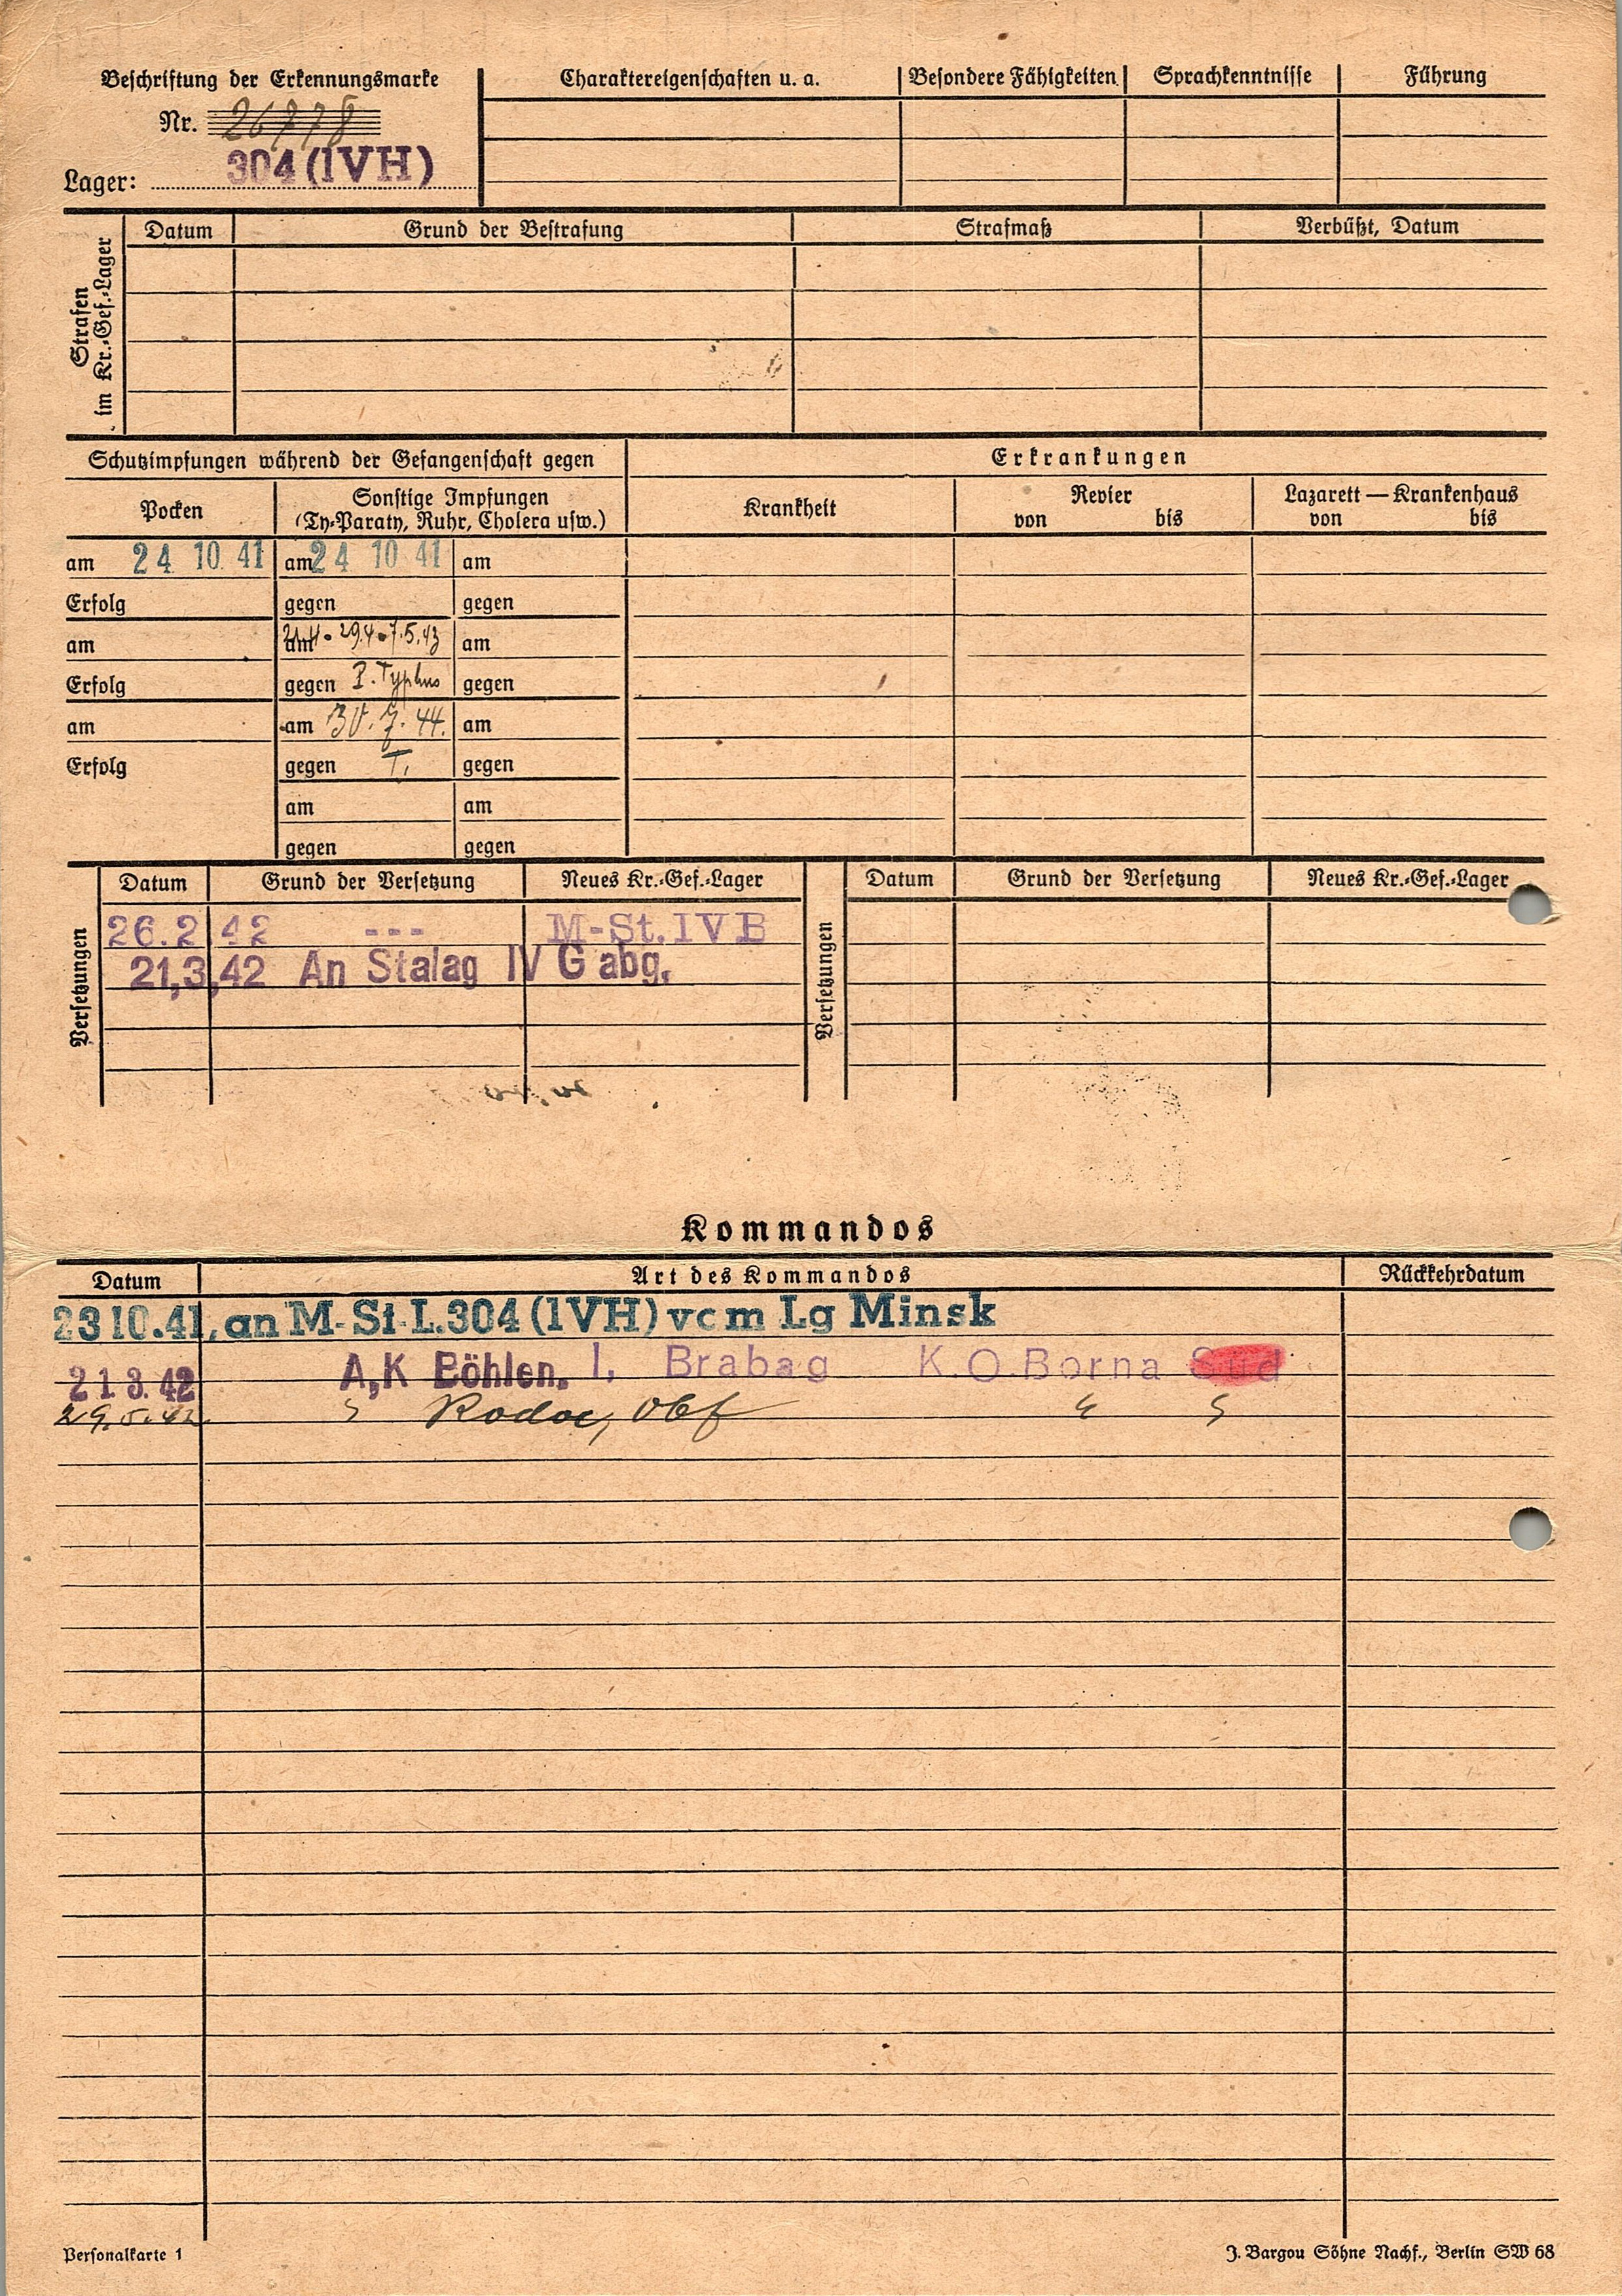 Beschriftung der Erkennungsmarke
Nr. 26778
304 (IVH)
Lager:
Charaktereigenschaften u. a. Besondere Fähigkeiten Sprachkenntnisse Führung
Strafen im Kr.-Gef.-Lager
Datum Grund der Bestrafung Strafmaß Verbüßt, Datum
Schutzimpfungen während der Gefangenschaft gegen
Erkrankungen
Pocken
Sonstige Impfungen
(Ty-Paraty, Ruhr, Cholera usw.)
Krankheit
Revier
von bis
Lazarett — Krankenhaus
von bis
am 24 10 41 am 24 10 41 am
Erfolg gegen gegen
am am 29.4 - 7.5.43 am
Erfolg gegen P. Typhus gegen
am am 30. 7. 44. am
Erfolg gegen T. gegen
am am
gegen gegen
Versetzungen
Datum Grund der Versetzung Neues Kr.-Gef.-Lager
26.2 42 --- M-St. IV B
21,3,42 An Stalag IV G abg.
Versetzungen
Datum Grund der Versetzung Neues Kr.-Gef.-Lager
Kommandos
Datum Art des Kommandos Rückkehrdatum
23 10.41, an M-St-L.304 (IVH) vom Lg Minsk
21.3.42 A,K Böhlen. I, Brabag K.O.Borna Süd
29.5.42
Personalkarte 1
J. Bargou Söhne Nachf., Berlin SW 68